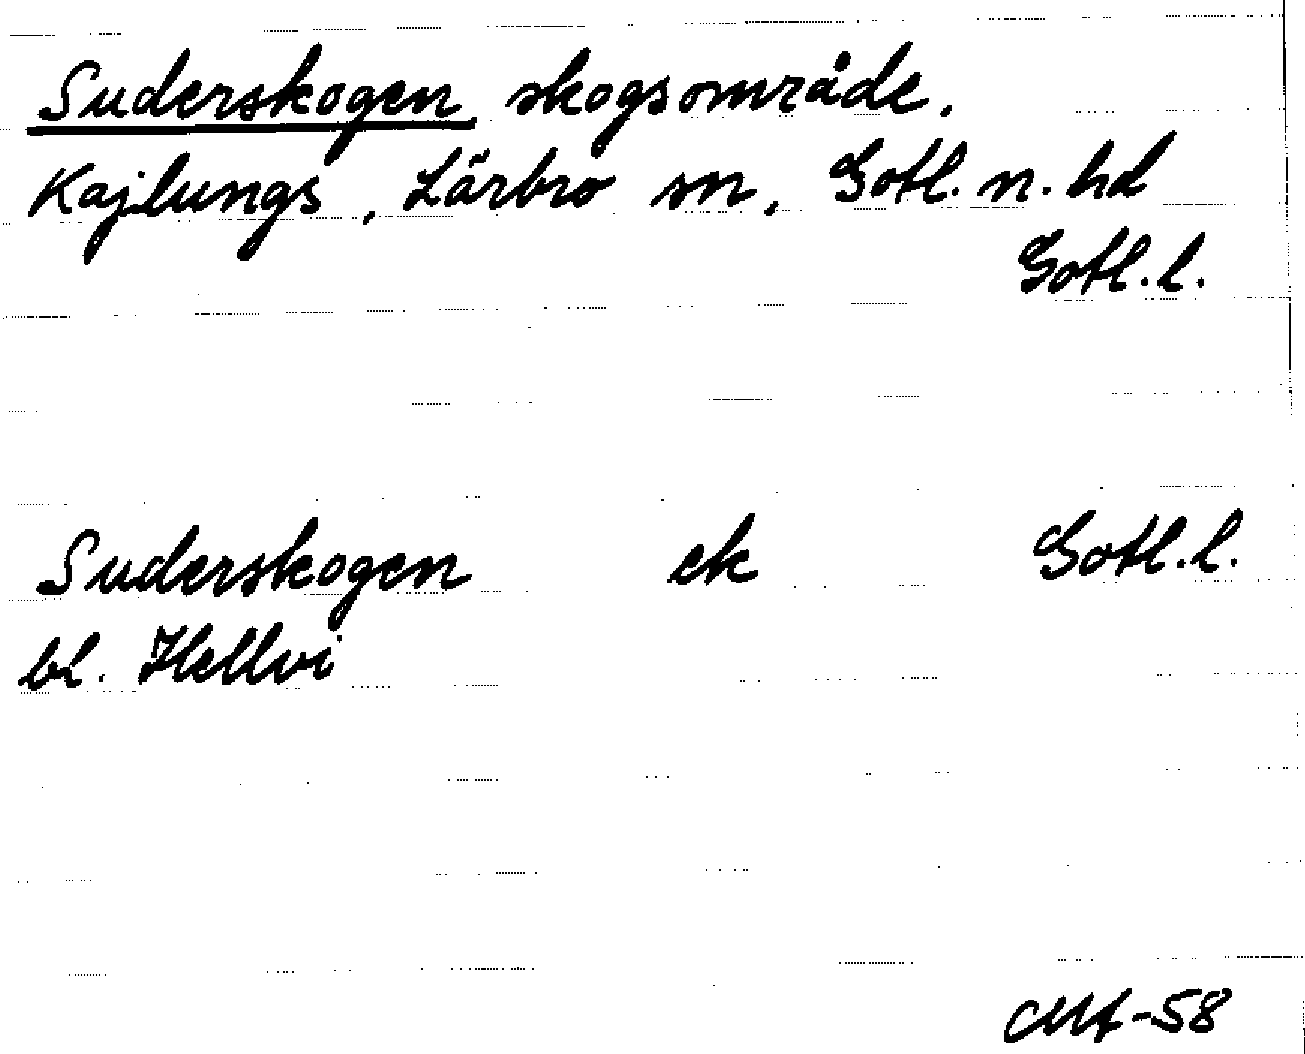 Suderskogen, skogsområde.
Kajlungs, Lärbro sn, Gotl. n. hd
Gotl. l.
Suderskogen ek Gotl. l.
bl. Hellvi
-58